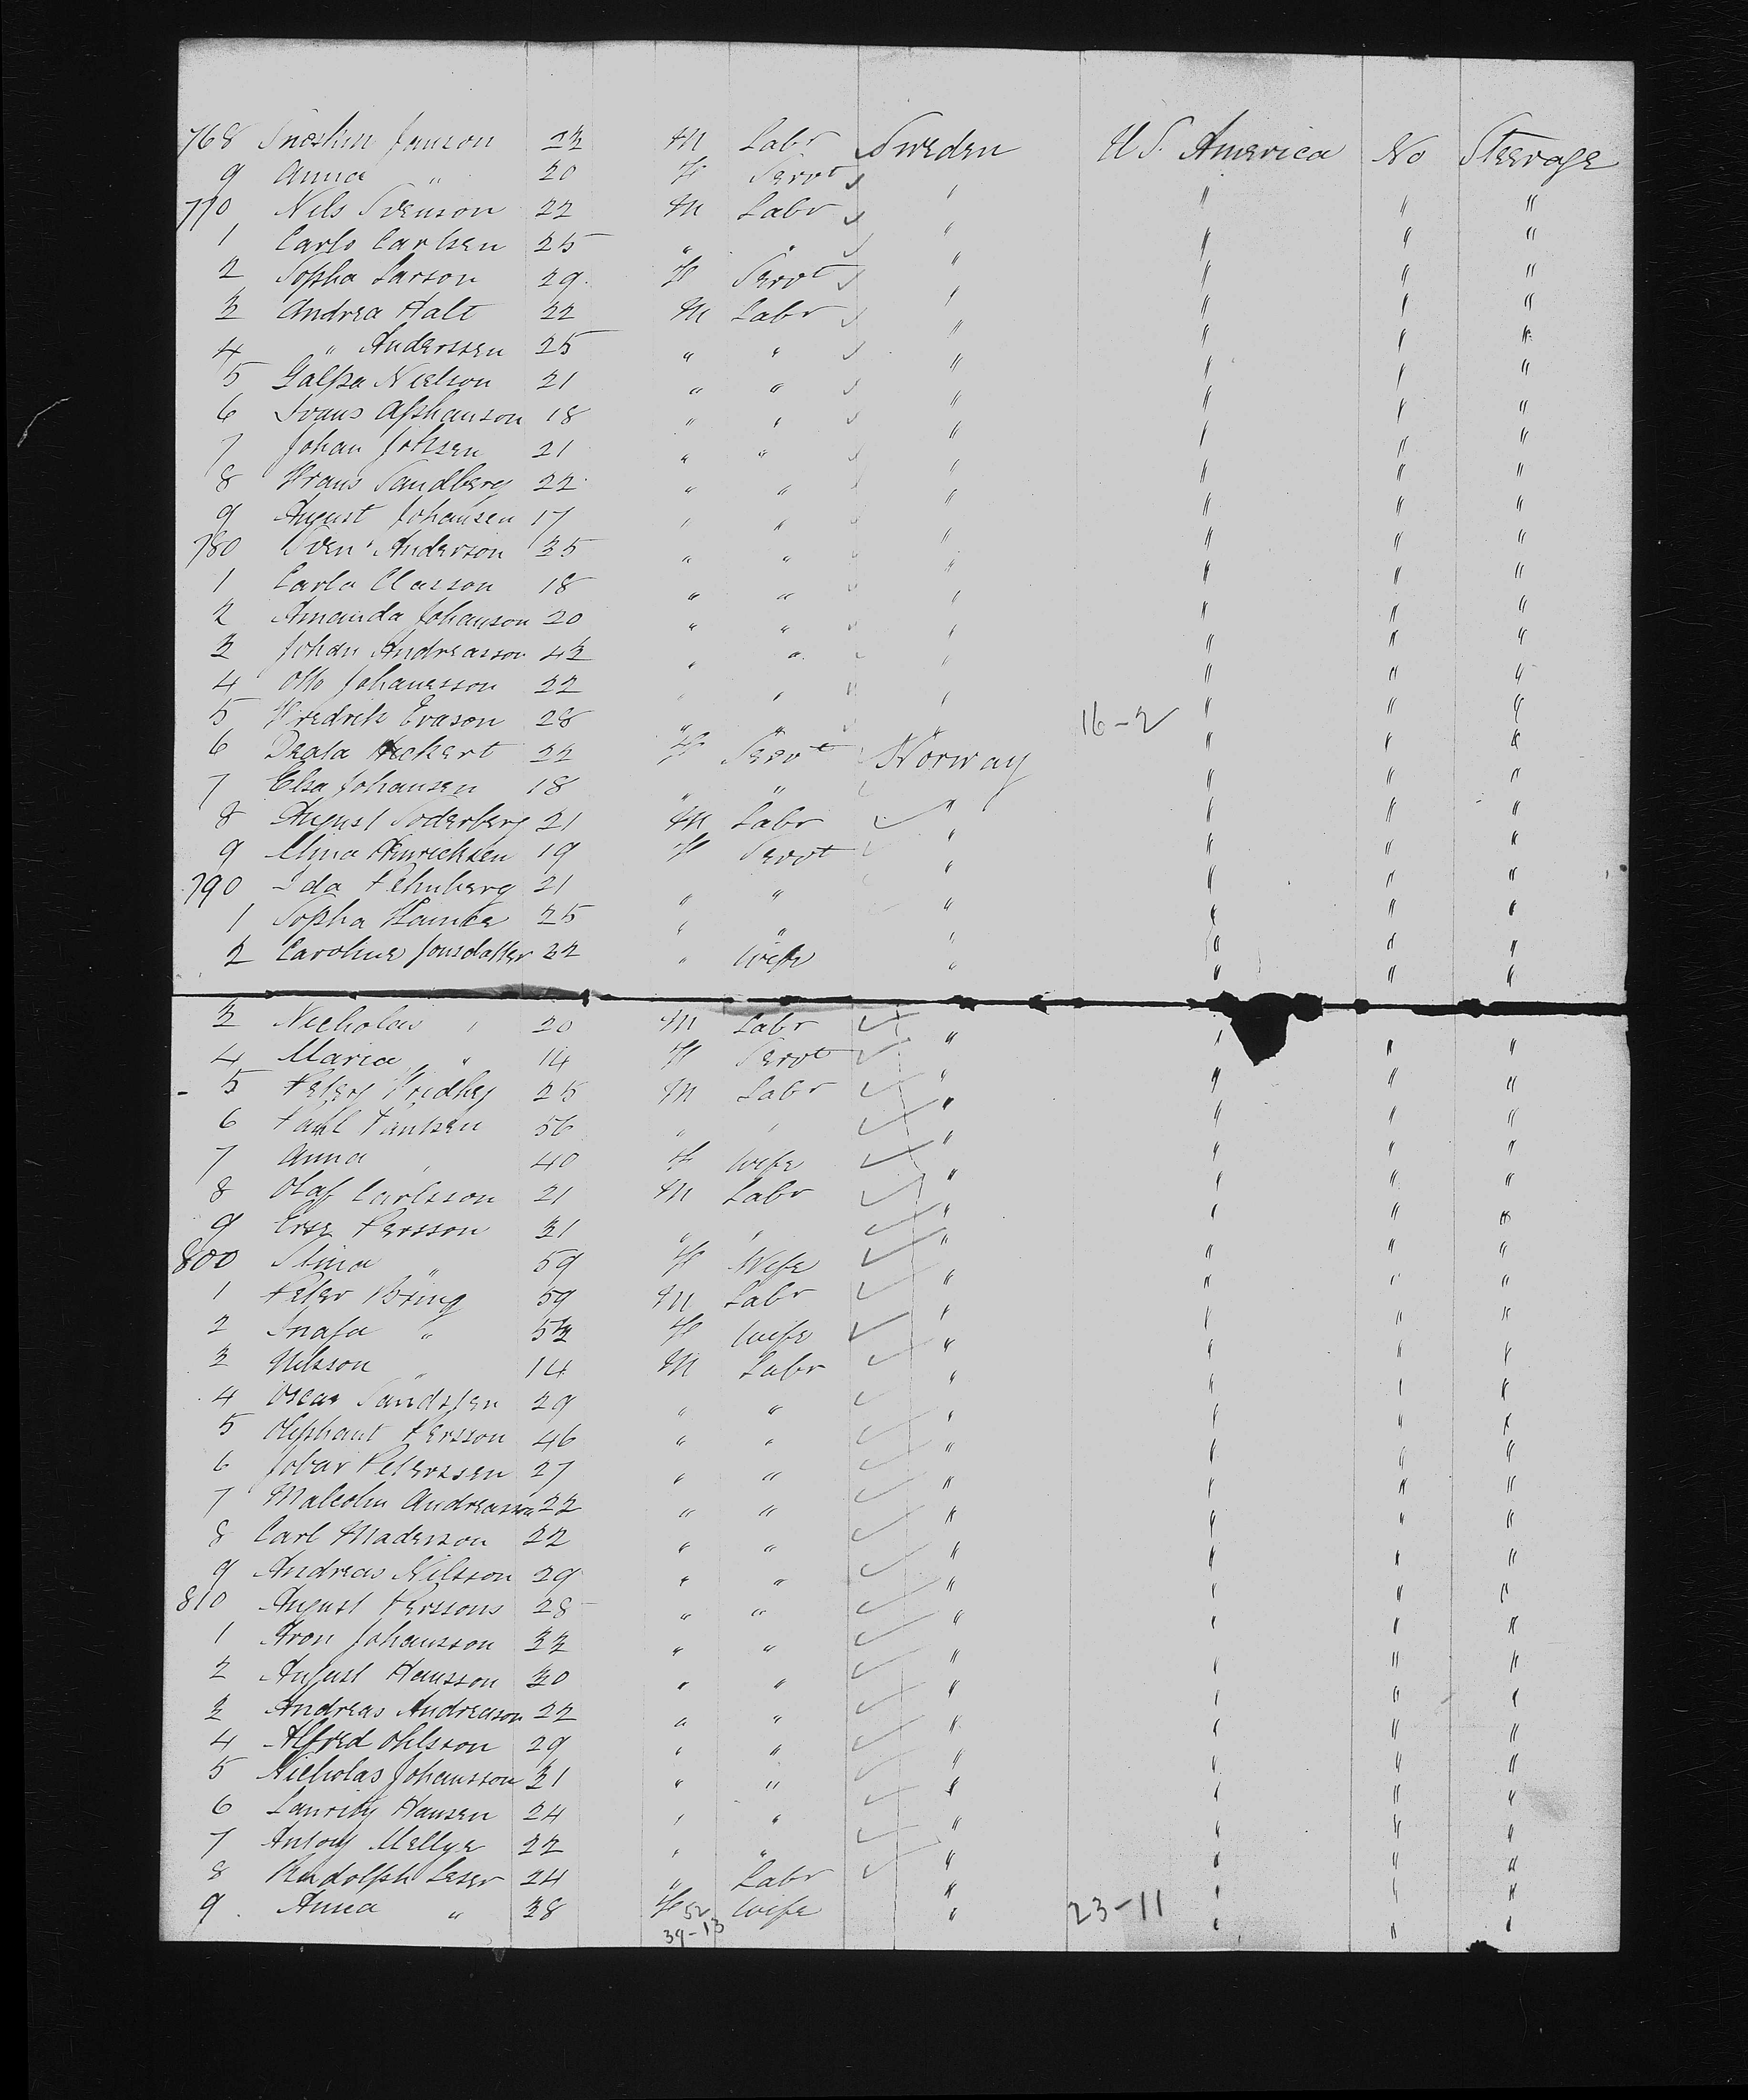 768 Jnoshin Janson 23 M Labr Sweden U S. America No Steerage
9 Anna " 20 F Servt " " " "
770 Nils Svenson 22 M Labr " " " "
1 Carlo Carlsen 25 " " " " " "
2 Sopha Larson 29 F Servt " " " "
3 Andrea Halt 22 M Labr " " " "
4 " Anderssen 25 " " " " " "
5 Nielson 21 " " " " " "
6 18 " " " " " "
7 Johan Johsen 21 " " " " " "
8 Frans Sandberg 22 " " " " " "
9 August Johansen 17 " " " " " "
780 Sven Anderson 35 " " " " " "
1 Carla Classon 18 " " " " " "
2 Amanda Johanson 20 " " " " " "
3 Johan Andreasson 43 " " " " " "
4 Otto Johanesson 22 " " " " " "
5 Fredrik Evason 28 " " " 16-2 " " "
6 Heckert 22 F Servt Norway " " "
7 Elsa Johansen 18 " " " " " "
8 August Soderberg 21 M Labr " " " "
9 Mina Hinrichsen 19 F Servt " " " "
790 Ida 21 " " " " " "
1 Sopha 25 " " " " " "
2 Caroline Jonsdatter 32 " Wife " " " "
3 Nicholas " 20 M Labr " " " "
4 Maria " 14 F Servt " " " "
5 Peter 25 M Labr " " " "
6 Paul 56 " " " " " "
7 Anna " 40 F Wife " " " "
8 Olaf Carlsson 21 M Labr " " " "
9 Persson 31 " " " " " "
800 Stina " 59 F Wife " " " "
1 Peter Bring 59 M Labr " " " "
2 " 53 F Wife " " " "
3 Nilsson " 14 M Labr " " " "
4 Oscar Sandsten 29 " " " " " "
5 Oliphant Persson 46 " " " " " "
6 Peterssen 27 " " " " " "
7 Malcolm Andreasson 22 " " " " " "
8 Carl Madesson 22 " " " " " "
9 Andreas Nilsson 29 " " " " " "
810 August Perssons 28 " " " " " "
1 Aron Johansson 33 " " " " " "
2 August Hansson 30 " " " " " "
3 Andreas Andreason 22 " " " " " "
4 Alfred Ohlsson 29 " " " " " "
5 Nicholas Johansson 31 " " " " " "
6 Lauritz Hansen 24 " " " " " "
7 Antony Mellye 22 " " " " " "
8 Rudolph Leser 24 " Labr " " " "
9 Anna " 38 F 52 Wife " 23-11 " " "
39-13